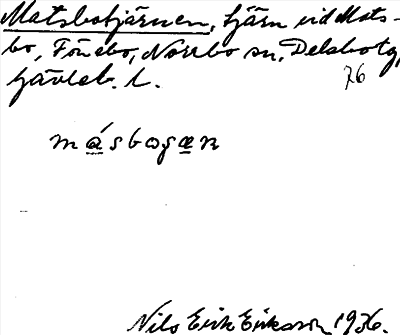 Matsbotjärnen, tjärn vid Mats-
bo, Fönebo, Norrbo sn, Delsbo tg,
Gävleb. l.
76
másbogan
Nils Erik Eriksson 1936.